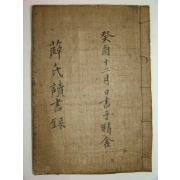 癸酉十二月日書于晴舍
薛氏讀書録